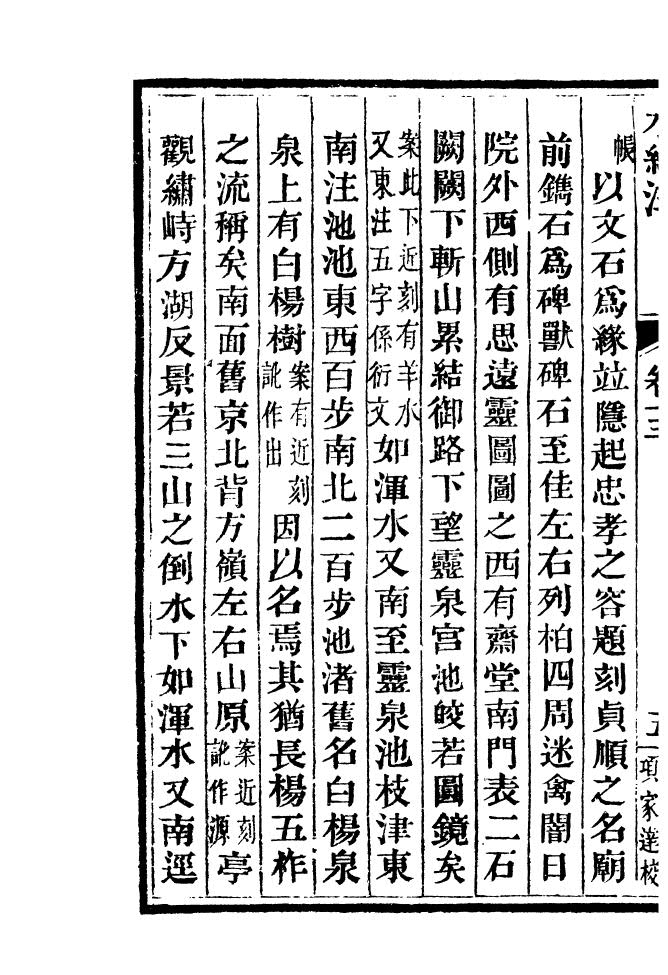 水經注 卷十三 五 項家達校
帳以文石爲緣並隱起忠孝之容題刻貞順之名廟
前鐫石爲碑獸碑石至佳左右列柏四周迷禽闇日
院外西側有思遠靈圖圖之西有齋堂南門表二石
闕闕下斬山累結御路下望靈泉宮池皎若圓鏡矣
案此下近刻有羊水又東注五字係衍文如渾水又南至靈泉池枝津東
南注池池東西百步南北二百步池渚舊名白楊泉
泉上有白楊樹案有近刻訛作出因以名焉其猶長楊五柞
之流稱矣南面舊京北背方嶺左右山原案近刻訛作源亭
觀繡峙方湖反景若三山之倒水下如渾水又南逕